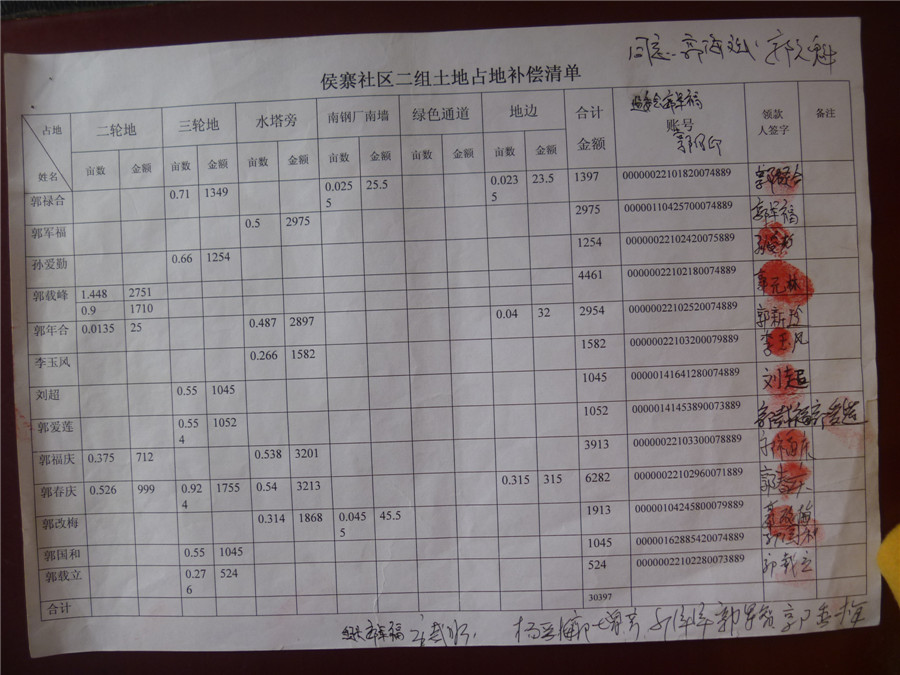 同意
侯寨社区二组土地占地补偿清单
占地 姓名 二轮地 三轮地 水塔旁 南钢厂南墙 绿色通道 地边 合计金额 账号 领款人签字 备注
亩数 金额 亩数 金额 亩数 金额 亩数 金额 亩数 金额 亩数 金额
郭禄合 0.71 1349 0.0255 25.5 0.0235 23.5 1397 00000022101820074889
郭军福 0.5 2975 2975 00000110425700074889 郭军福
孙爱勤 0.66 1254 1254 00000022102420075889
郭载峰 1.448 2751 4461 00000022102180074889
0.9 1710
郭年合 0.0135 25 0.487 2897 0.04 32 2954 00000022102520074889
李玉风 0.266 1582 1582 00000022103200079889 李玉风
刘超 0.55 1045 1045 00000141641280074889 刘超
郭爱莲 0.554 1052 1052 00000141453890073889
郭福庆 0.375 712 0.538 3201 3913 00000022103300078889
郭春庆 0.526 999 0.924 1755 0.54 3213 0.315 315 6282 00000022102960071889
郭改梅 0.314 1868 0.0455 45.5 1913 00000104245800079889
郭国和 0.55 1045 1045 00000162885420074889
郭载立 0.276 524 524 00000022102280073889
合计 30397